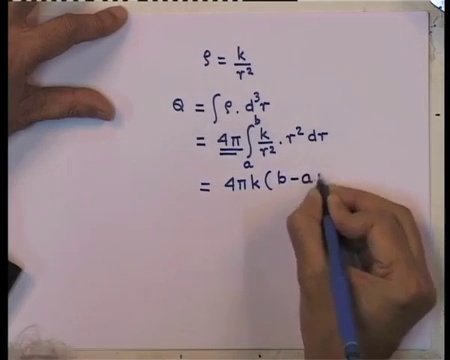 ρ = k/r²
Q = ∫ ρ. d³r
= 4π ∫ₐᵇ k/r² . r² dr
= 4πk ( b – a